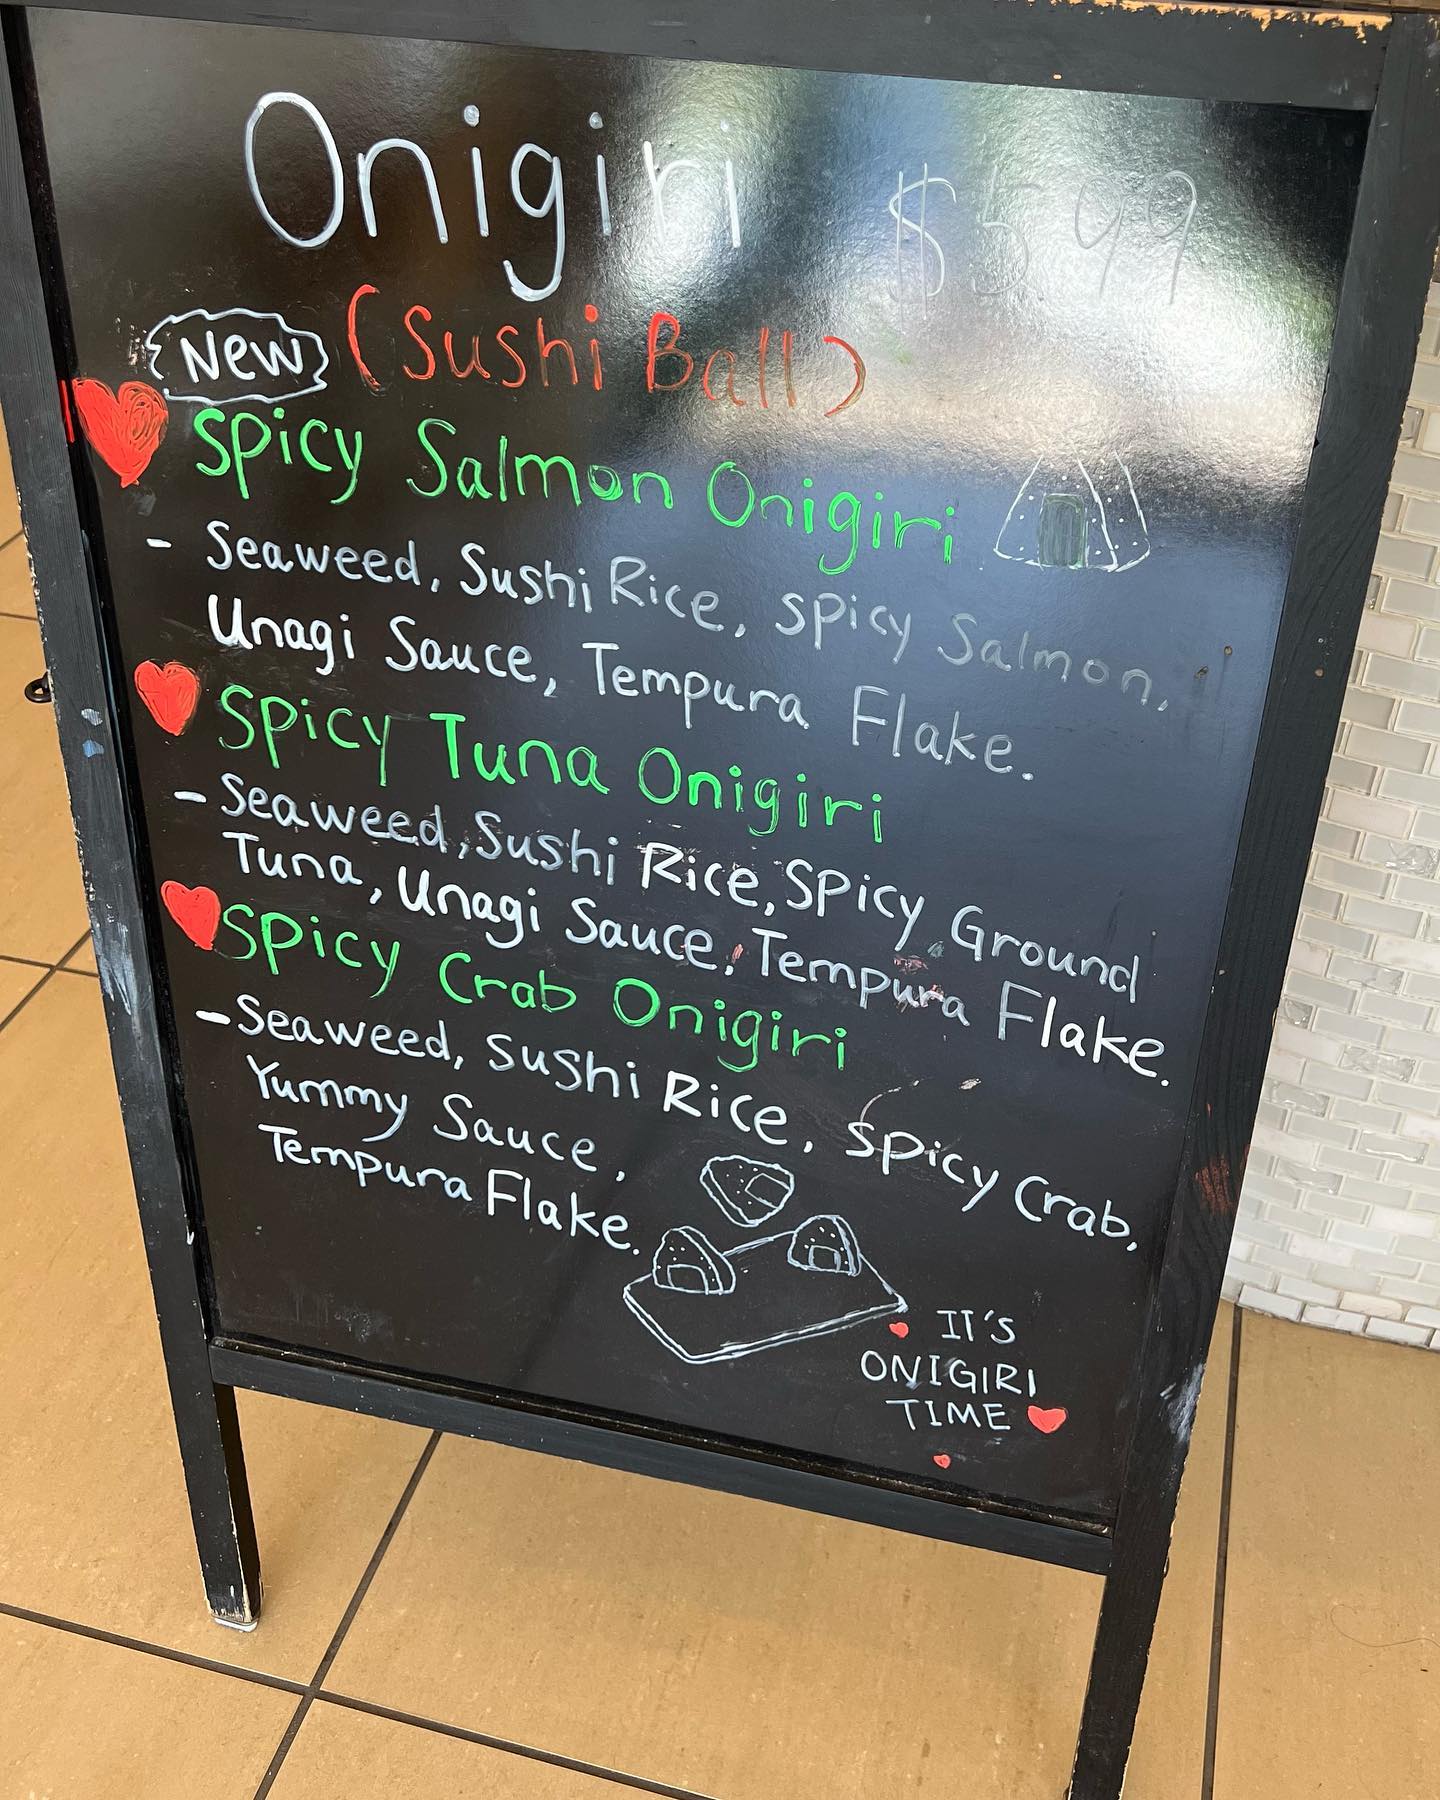 Onigiri $5.99
New (Sushi Ball)
Spicy Salmon Onigiri
- Seaweed, Sushi Rice, Spicy Salmon,
Unagi Sauce, Tempura Flake.
Spicy Tuna Onigiri
- Seaweed, Sushi Rice, Spicy Ground
Tuna, Unagi Sauce, Tempura Flake.
Spicy Crab Onigiri
- Seaweed, Sushi Rice, Spicy Crab,
Yummy Sauce,
Tempura Flake.
IT'S
ONIGIRI
TIME